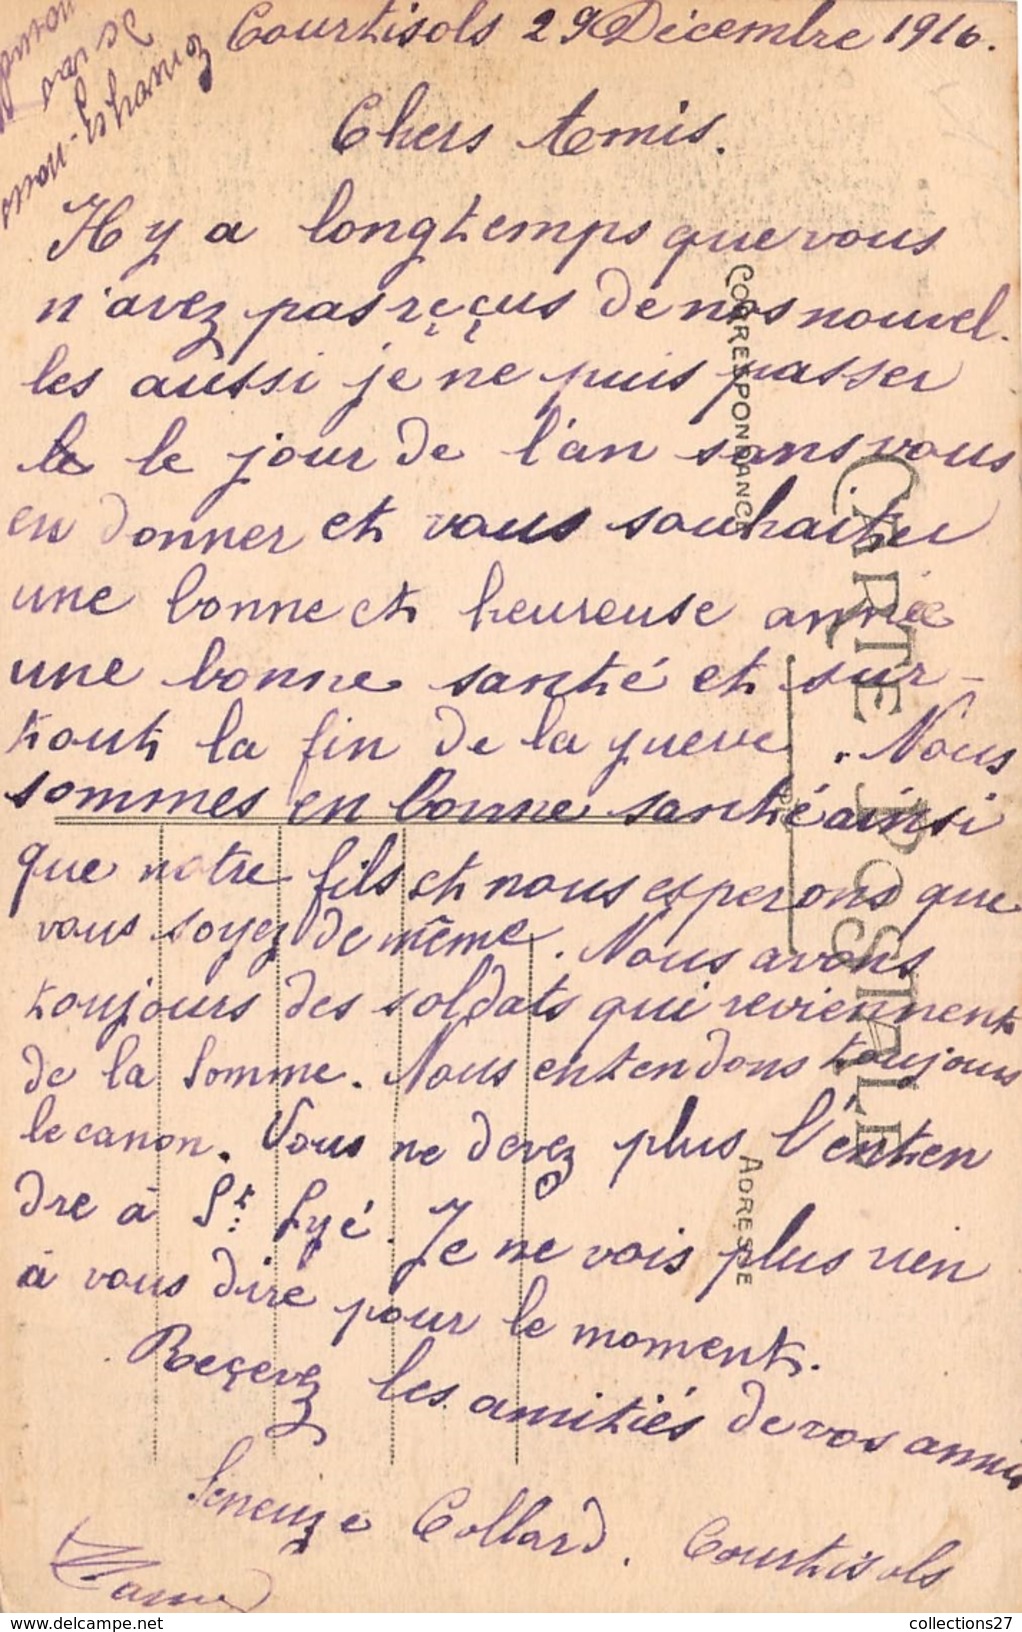 Courtisols 29 Décembre 1916.
Chers Amis.
Il y a longtemps que vous
n'avez pas reçus de nos nouvel-
les aussi je ne puis passer
le le jour de l'an sans vous
en donner et vous souhaiter
une bonne et heureuse année
une bonne santé et sur-
tout la fin de la guerre. Nous
sommes en bonne santé ainsi
que notre fils et nous esperons que
vous soyez de même. Nous avons
toujours des soldats qui reviennent
de la Somme. Nous entendons toujours
le canon. Vous ne devez plus l'enten
dre à St Lyé. Je ne vois plus rien
à vous dire pour le moment.
Reçevez les amitiés de vos amis
Seneuze Collard. Courtisols
Marne
Envoyez-nous
de vos
CARTE POSTALE
CORRESPONDANCE
ADRESSE
collections27